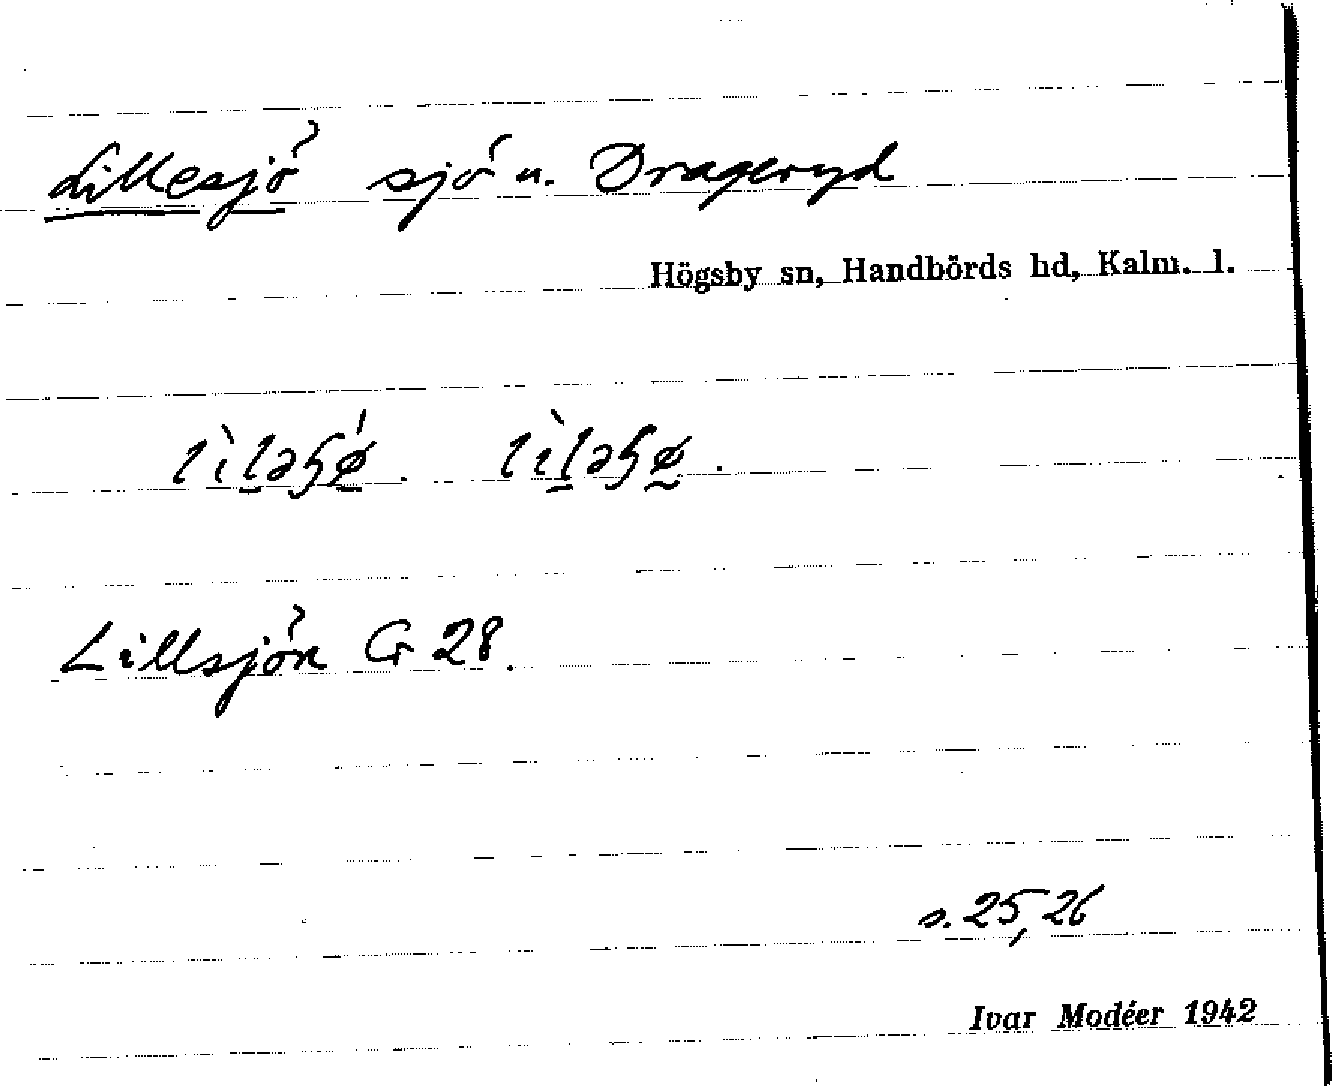 Lillesjö sjö u. Drageryd
Högsby sn, Handbörds hd, Kalm. l.
Lillsjön G 28.
s. 25, 26
Ivar Modéer 1942